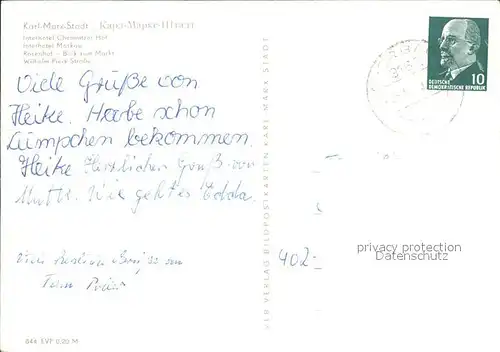 Karl-Marx-Stadt Карл-Маркс-Штадт
Interhotel Chemnitzer Hof
Interhotel Moskau
Rosenhof - Blick zum Markt
Wilhelm-Pieck-Straße
Viele Grüße von
Heike. Habe schon
Lümpchen bekommen.
Heike Herzlichen Gruß von
Mutti. Wie geht es Edda.
Viele
402:-
VEB VERLAG BILDPOSTKARTEN KARL-MARX-STADT
10
DEUTSCHE
DEMOKRATISCHE REPUBLIK
privacy protection
Datenschutz
EVP 0,20 M